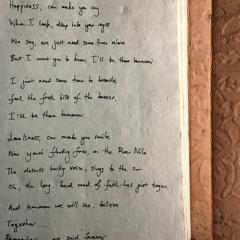 Happiness, can make you cry
When I look, deep into your eyes
We say, we just need some time alone
But I want you to know, I'll be there tomorrow
I just need some time to breathe
feel the fresh, bite of the breeze,
I'll be there tomorrow
Loneliness, can make you smile
Now you're floating free, on the River Nile
The deserts husky voice, sings to the sun
Oh, the long, hard road of faith has just began
And tomorrow we will see, believe
Together...
Remember we said forever